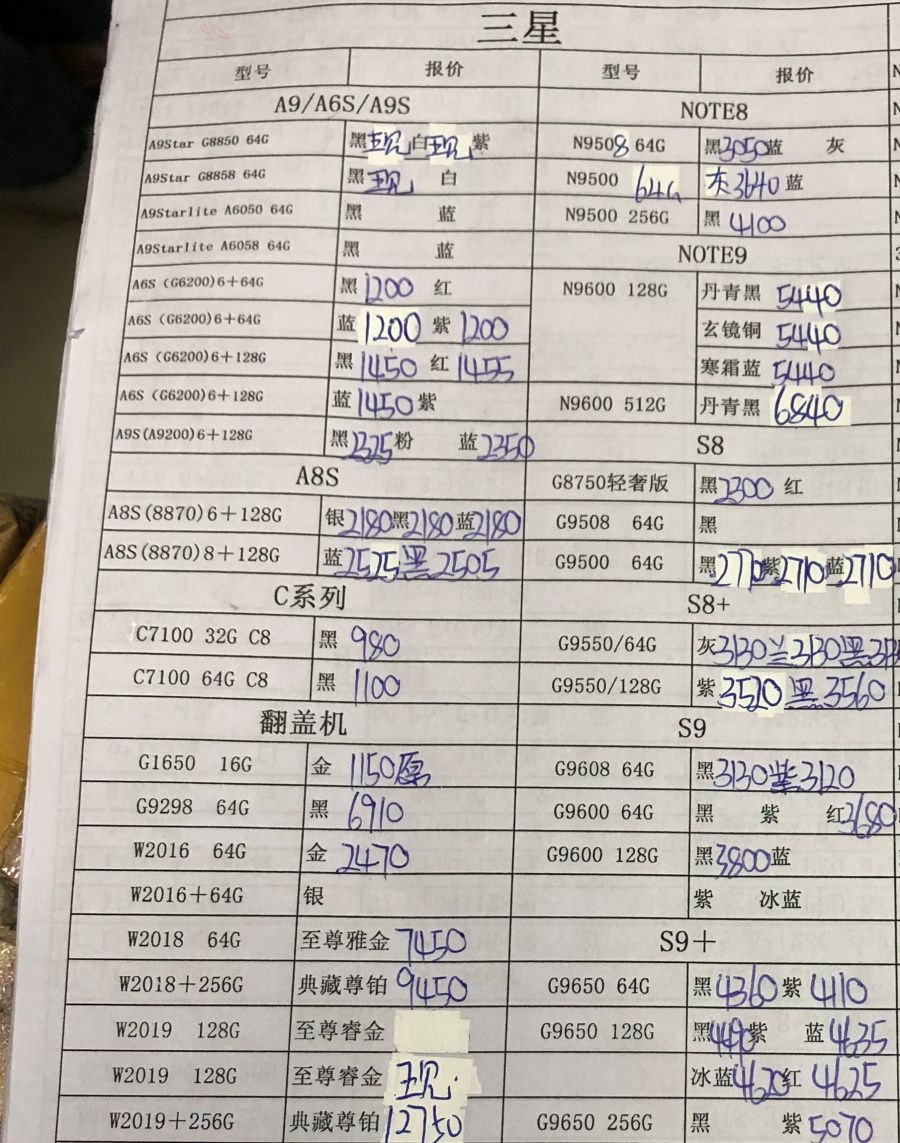 三星
型号 报价 型号 报价
A9/A6S/A9S NOTE8
A9Star G8850 64G 黑现白现紫 N9508 64G 黑3050蓝 灰
A9Star G8858 64G 黑现 白 N9500 64G 灰3640蓝
A9Starlite A6050 64G 黑 蓝 N9500 256G 黑 4100
A9Starlite A6058 64G 黑 蓝 NOTE9
A6S (G6200)6+64G 黑1200 红 N9600 128G 丹青黑 5440
A6S (G6200)6+64G 蓝1200 紫1200 玄镜铜 5440
A6S (G6200)6+128G 黑1450 红1455 寒霜蓝 5440
A6S (G6200)6+128G 蓝1450紫 N9600 512G 丹青黑 6840
A9S(A9200)6+128G 黑2325粉 蓝2350 S8
A8S G8750轻奢版 黑2300 红
A8S(8870)6+128G 银2180黑2180蓝2180 G9508 64G 黑
A8S(8870)8+128G 蓝2525黑2505 G9500 64G 黑2770紫2710蓝2710
C系列 S8+
C7100 32G C8 黑 980 G9550/64G 灰3130兰3130黑
C7100 64G C8 黑 1100 G9550/128G 紫3520黑3560
翻盖机 S9
G1650 16G 金 1150原 G9608 64G 黑3130紫3120
G9298 64G 黑 6910 G9600 64G 黑 紫 红3680
W2016 64G 金 2470 G9600 128G 黑3800蓝
W2016+64G 银 紫 冰蓝
W2018 64G 至尊雅金 7450 S9+
W2018+256G 典藏尊铂 9450 G9650 64G 黑4360紫4110
W2019 128G 至尊睿金 G9650 128G 黑 紫 蓝4635
W2019 128G 至尊睿金 现 冰蓝4620红4625
W2019+256G 典藏尊铂12750 G9650 256G 黑 紫5070